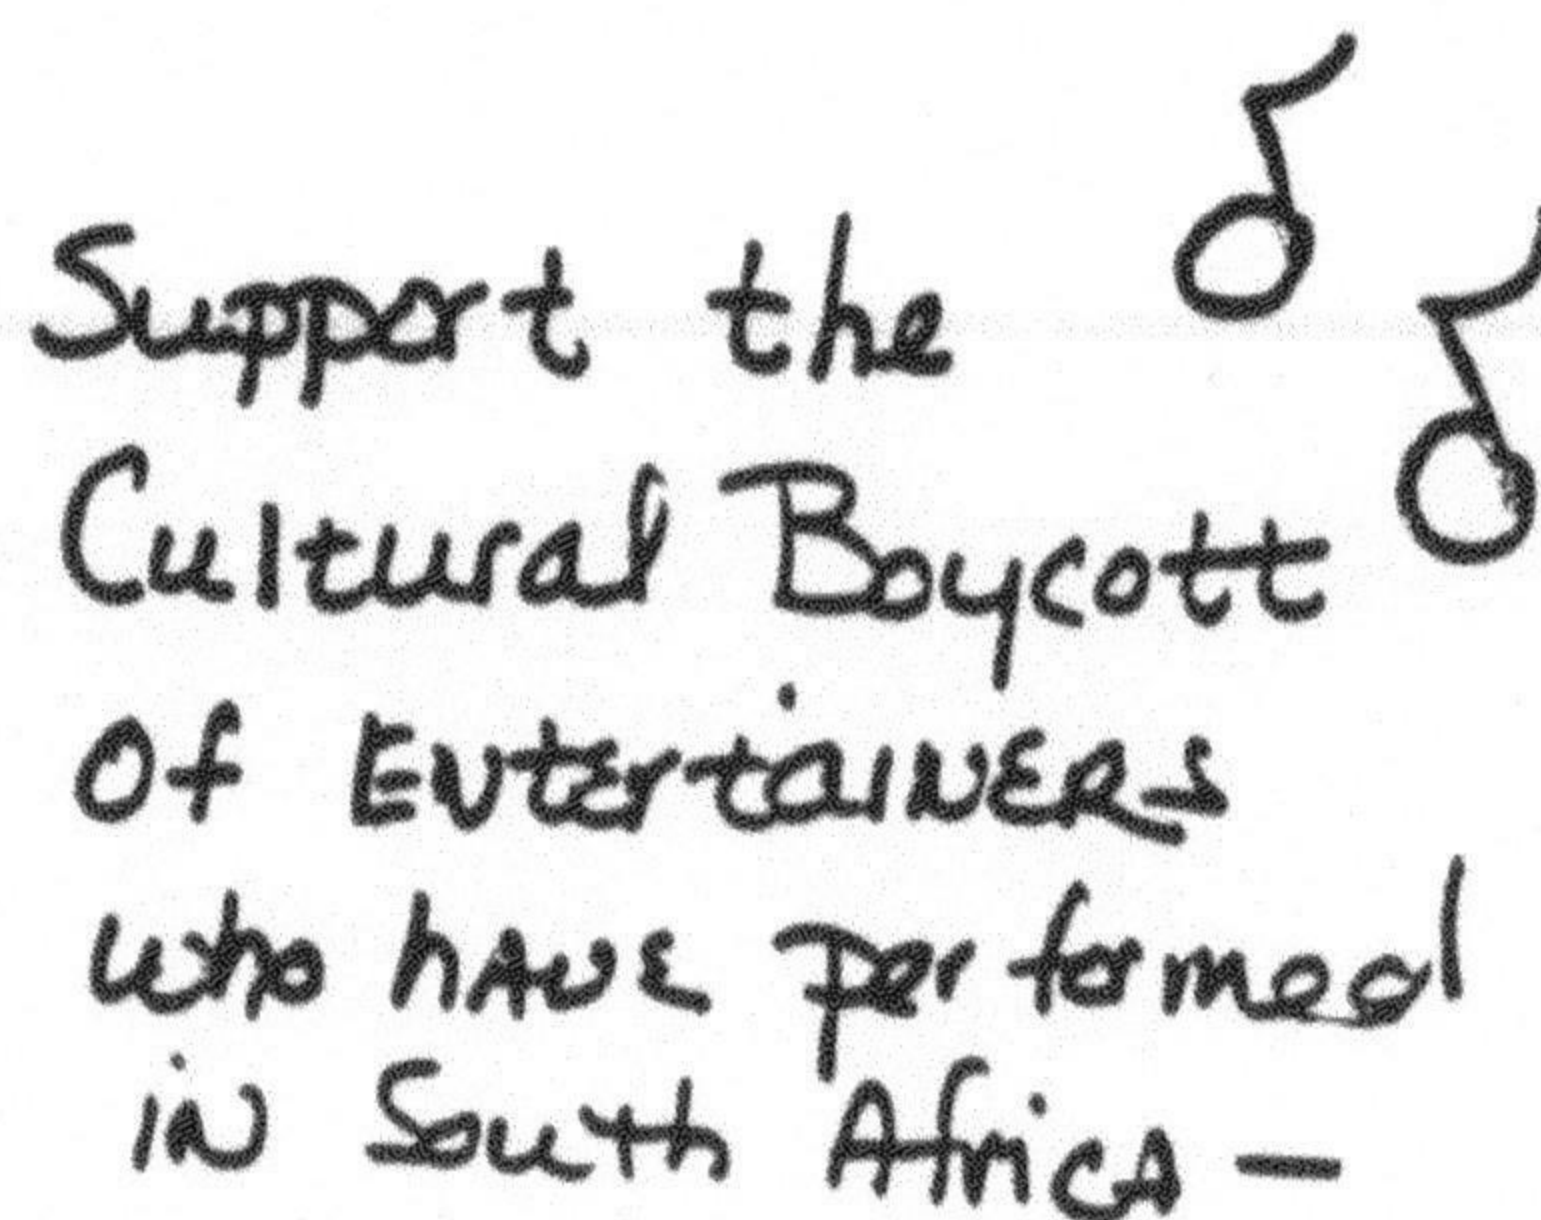 Support the
Cultural Boycott
Of ENtertaiNERS
who hAVE performed
iN South AfricA —